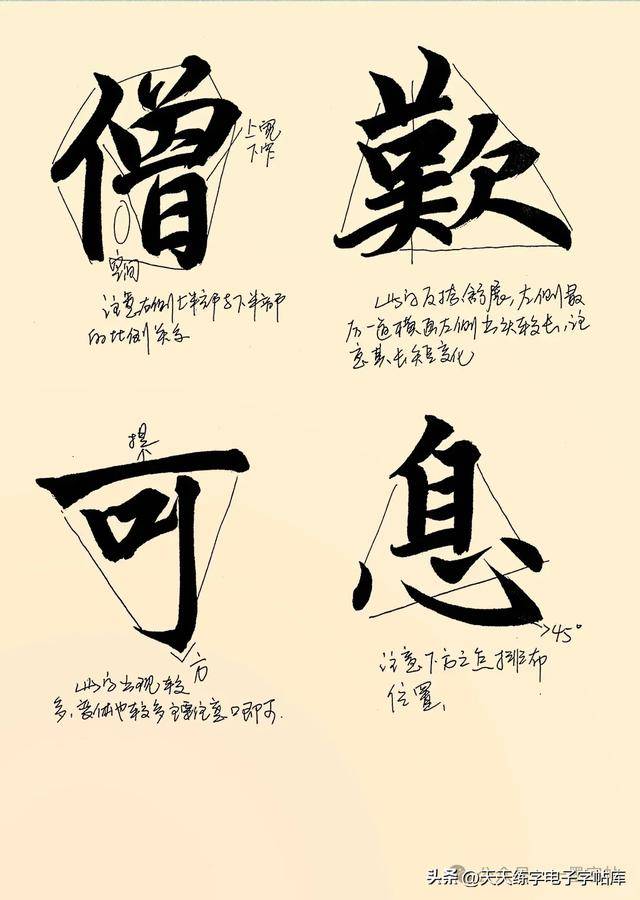 僧
上宽
下窄
空间
注意右侧上半部与下半部
的比例关系
歎
此字反捺舒展,左侧最
后一道横画左侧出头较长,注
意其长短变化
可
提
方
此字出现较
多,变体也较多主要注意口即可.
息
45°
注意下方之点排布
位置,
头条 @天天练字电子字帖库